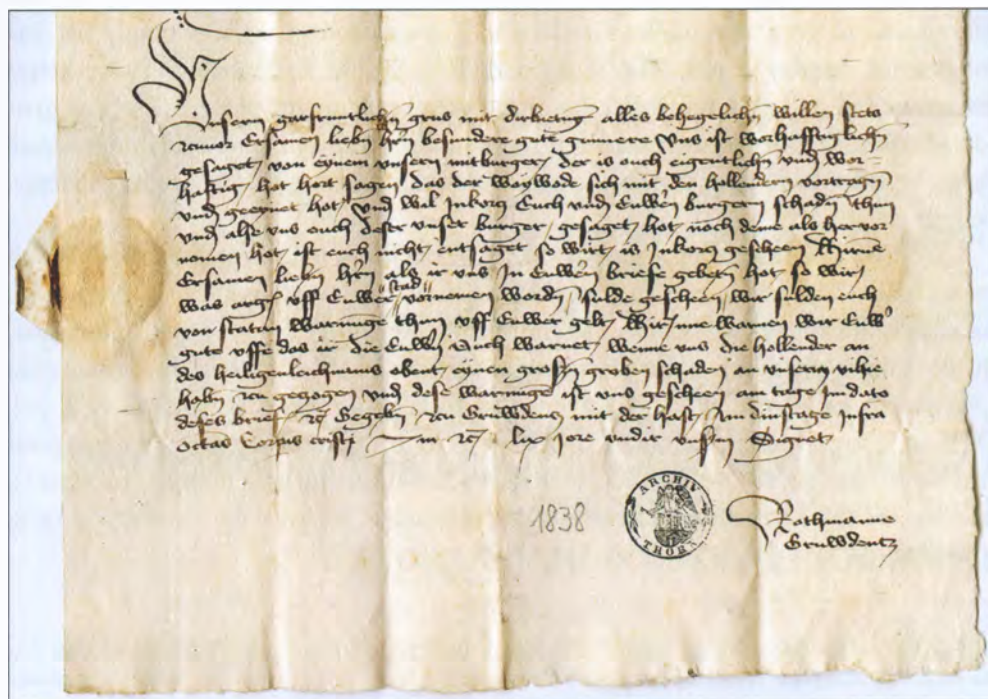 Unsern garfruntlichen grus mit dirbietung alles behegelichen willen stets
zcuvor Ersamen lieben hern besundere gute gunnere Uns ist worhafftiglichen
gesaget von eynem unsern mitburger der is ouch eigentlichen und wor-
hafftig hot hort sagen das der woywode sich mit den hollendern vortragen
und geeynet hot und wil inkorcz Euch und Euwern burgern schaden thun
und alse uns ouch deser unser burger gesaget hot noch deme als her vor
nomen hot ist euch nicht entsaget so wirt is inkorcz gescheen Hirume
Ersamen lieben hern als ir uns in Euwern briefe gebeten hot so wir
was arges uff Euwer stad vornemen worden sulde gescheen wir sulden euch
von statan warnunge thun uff Euwer gelt Hirinne warnen wir Euwer
gute uffe das ir die Euwern Auch warnet wenne uns die hollender an
des heiligenleichnams obent eynen grossen groben schaden an unserm vihe
haben zcu gezogen und dese warnunge ist uns gescheen am tage im dato
deses briefes etc Gegeben zcu Gruwdentz mit der hast am dinstage infra
octavas Corporis cristi Im etc lix jore undir unserm Signet
Rothmanne
Gruwdentz
1838
ARCHIV
THORN